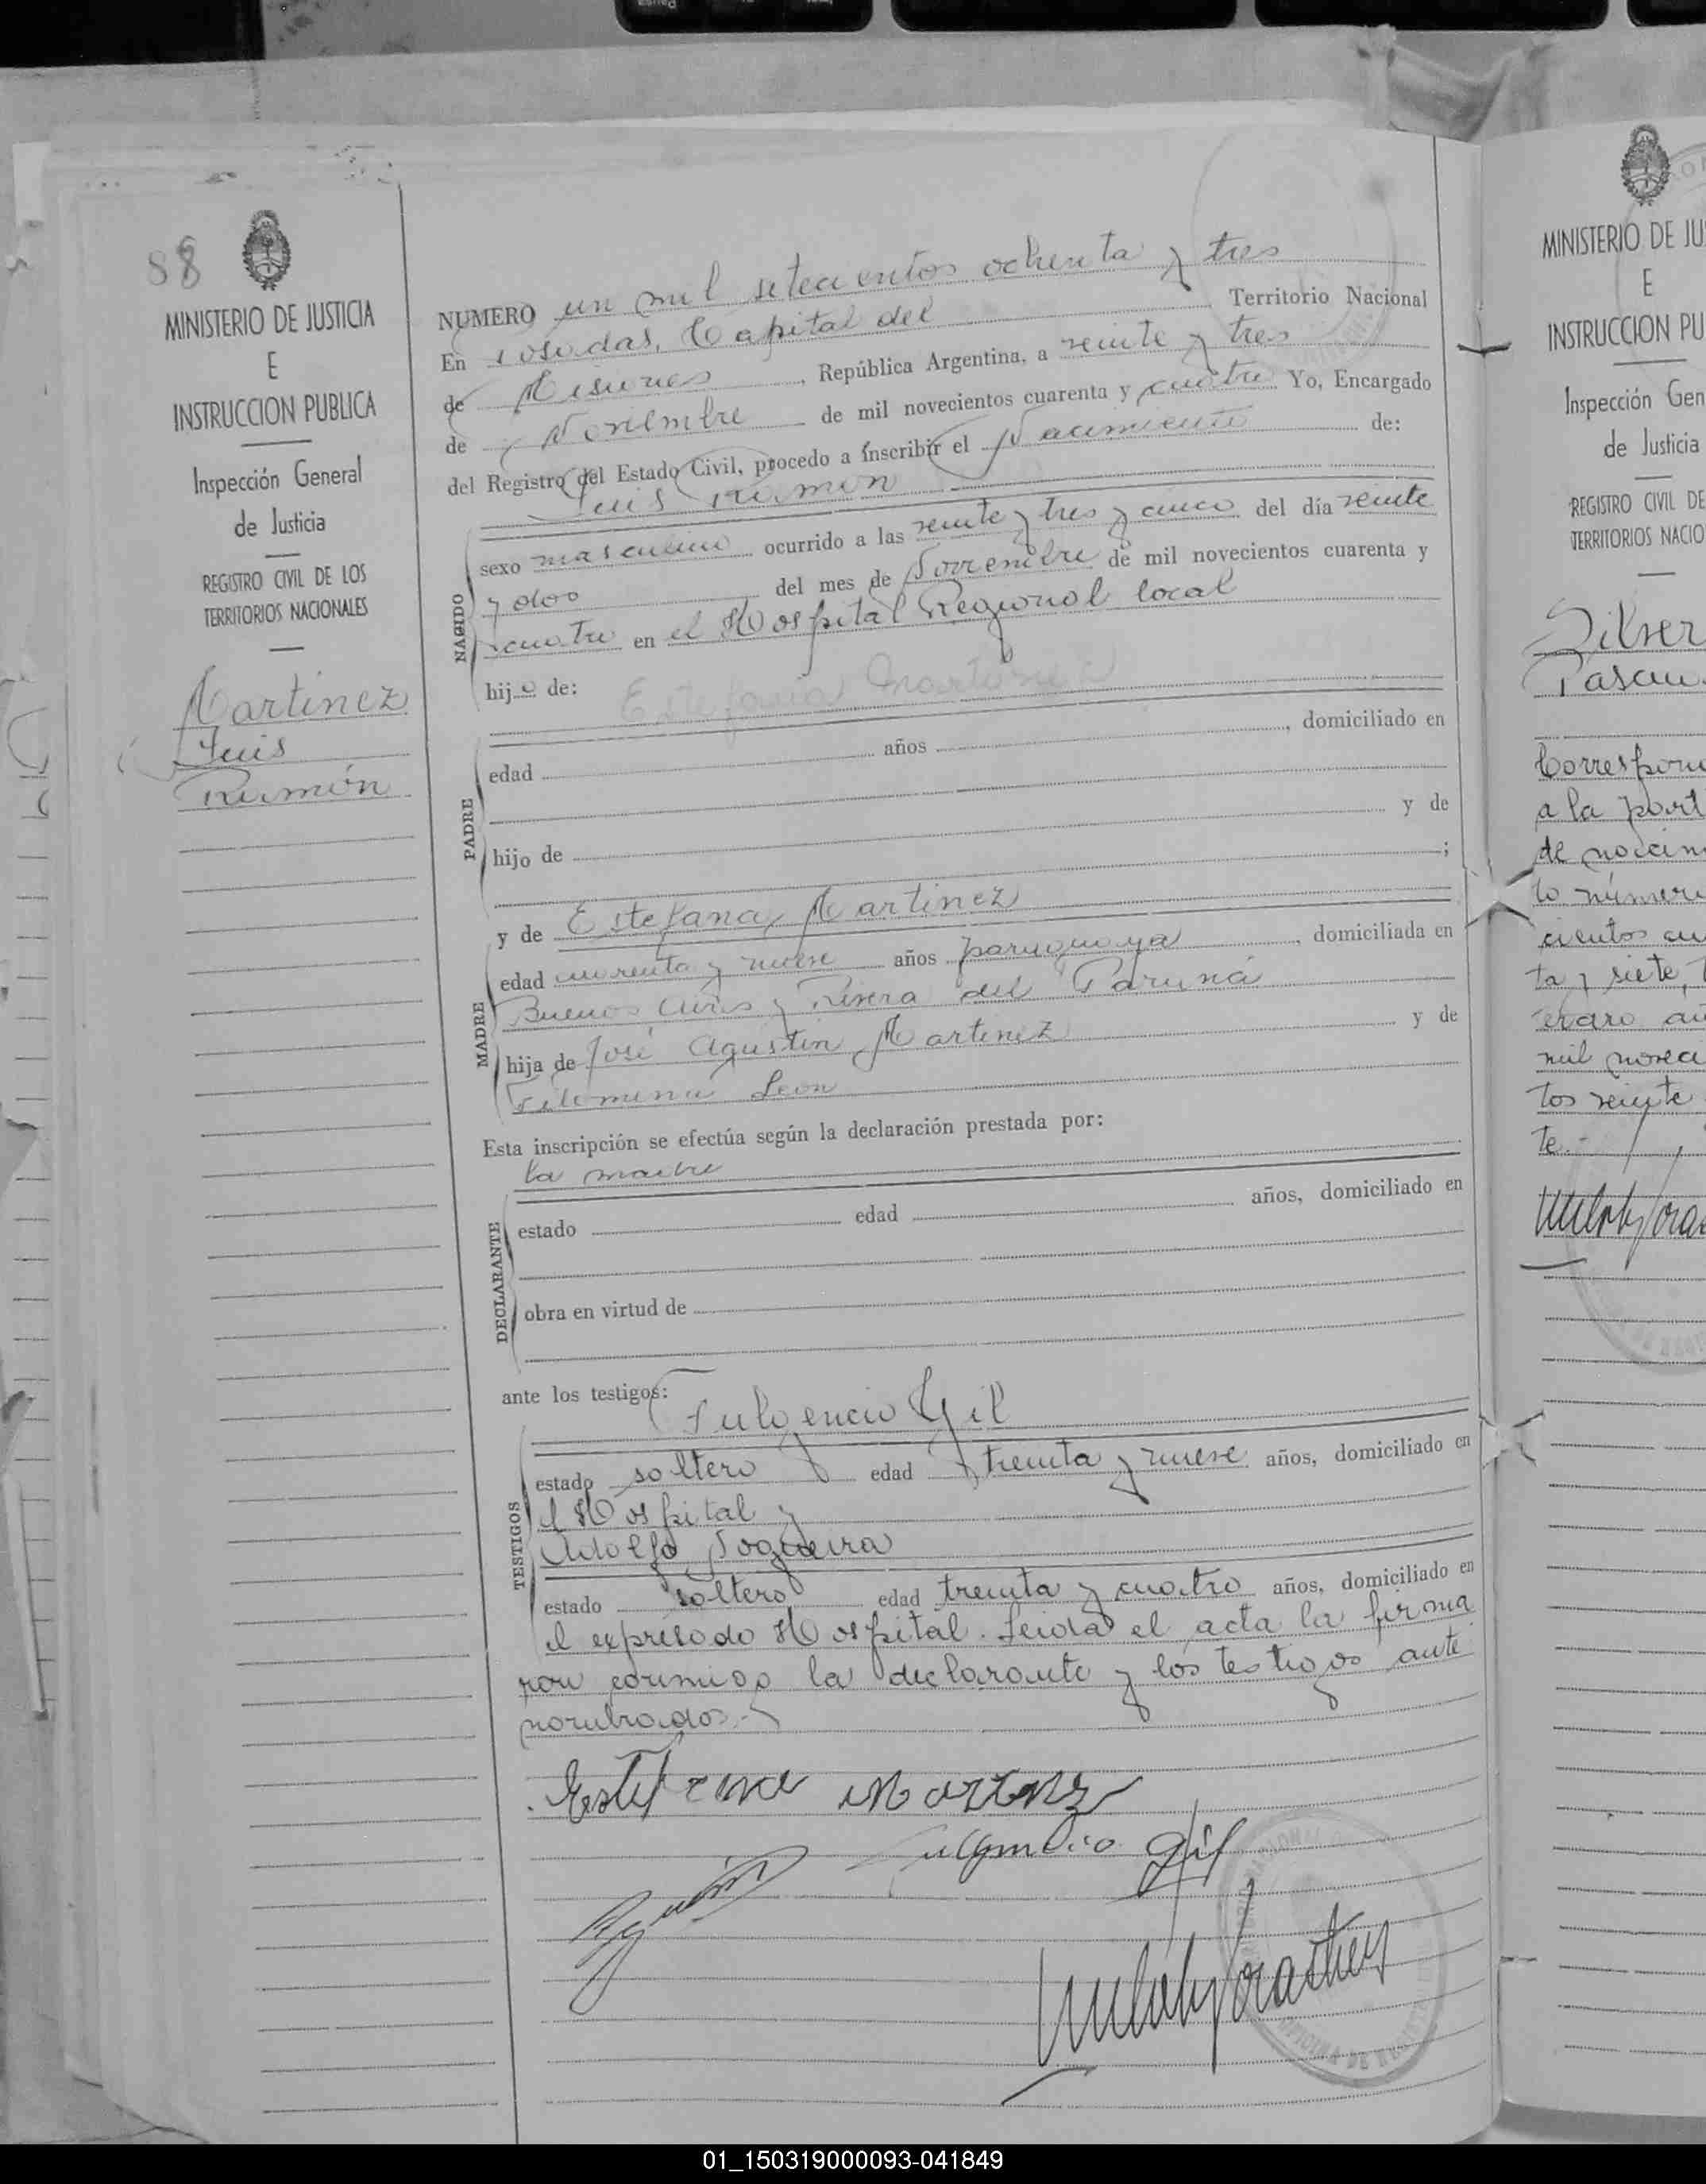 88
MINISTERIO DE JUSTICIA
E
INSTRUCCION PUBLICA
Inspección General
de Justicia
REGISTRO CIVIL DE LOS
TERRITORIOS NACIONALES
Martinez
Luis
Ramón
NUMERO un mil setecientos ochenta y tres
En Posadas, Capital del Territorio Nacional
de Misiones, República Argentina, a veinte y tres
de Noviembre de mil novecientos cuarenta y cuatro Yo, Encargado
del Registro del Estado Civil, procedo a inscribir el Nacimiento de:
Luis Ramon
NACIDO
sexo masculino ocurrido a las veinte y tres y cinco del día veinte
y dos del mes de Noviembre de mil novecientos cuarenta y
cuatro en el Hospital Regional local
hijo de: Estefania Martinez
PADRE
edad años, domiciliado en
y de
hijo de ;
MADRE
y de Estefana Martinez
edad cuarenta y nueve años paraguaya, domiciliada en
Buenos Aires y Rivera del Paraná
hija de José Agustin Martinez y de
Filomena Leon
Esta inscripción se efectúa según la declaración prestada por:
la madre
DECLARANTE
estado edad años, domiciliado en
obra en virtud de
ante los testigos:
Fulgencio Gil
TESTIGOS
estado soltero edad treinta y nueve años, domiciliado en
el Hospital y
Adolfo Nogueira
estado soltero edad treinta y cuatro años, domiciliado en
el expresado Hospital. Leida el acta la firma
ron conmigo la declarante y los testigos ante
nombrados.-
Estefana Martinez
Fulgencio Gil
OFICINA DE
MINISTERIO DE JU
E
INSTRUCCION PU
Inspección Gen
de Justicia
REGISTRO CIVIL DE
TERRITORIOS NACIO
Silver
Correspon
a la part
de nacim
to númer
cientos cu
ta y siete,
mil noveci
tos veinte
te.-
01_150319000093-041849